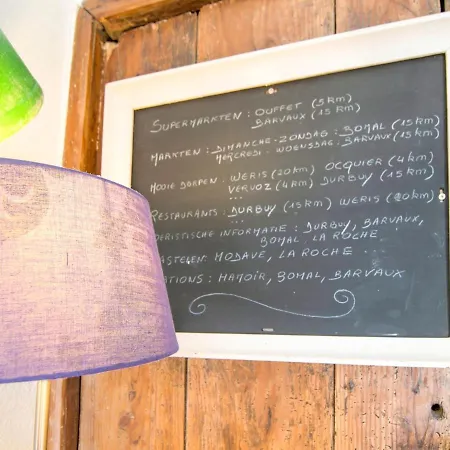 SUPERMARKTEN : OUFFET (5KM)
BARVAUX (15 KM)
MARKTEN : DIMANCHE-ZONDAG : BOMAL (15KM)
MERCREDI - WOENSDAG : BARVAUX (15KM)
MOOIE DORPEN : WERIS (20KM) OCQUIER (4KM)
... VERVOZ (4KM) DURBUY (15KM)
RESTAURANTS : DURBUY (15KM) WERIS (20KM)
...
OERISTISCHE INFORMATIE : DURBUY, BARVAUX,
BOMAL, LA ROCHE
ASTELEN : MODAVE, LA ROCHE
ATIONS : HAMOIR, BOMAL, BARVAUX